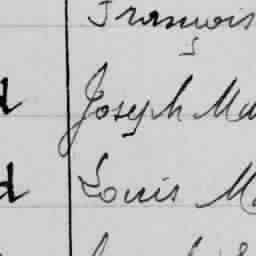 François
d Joseph Ma
d Louis M